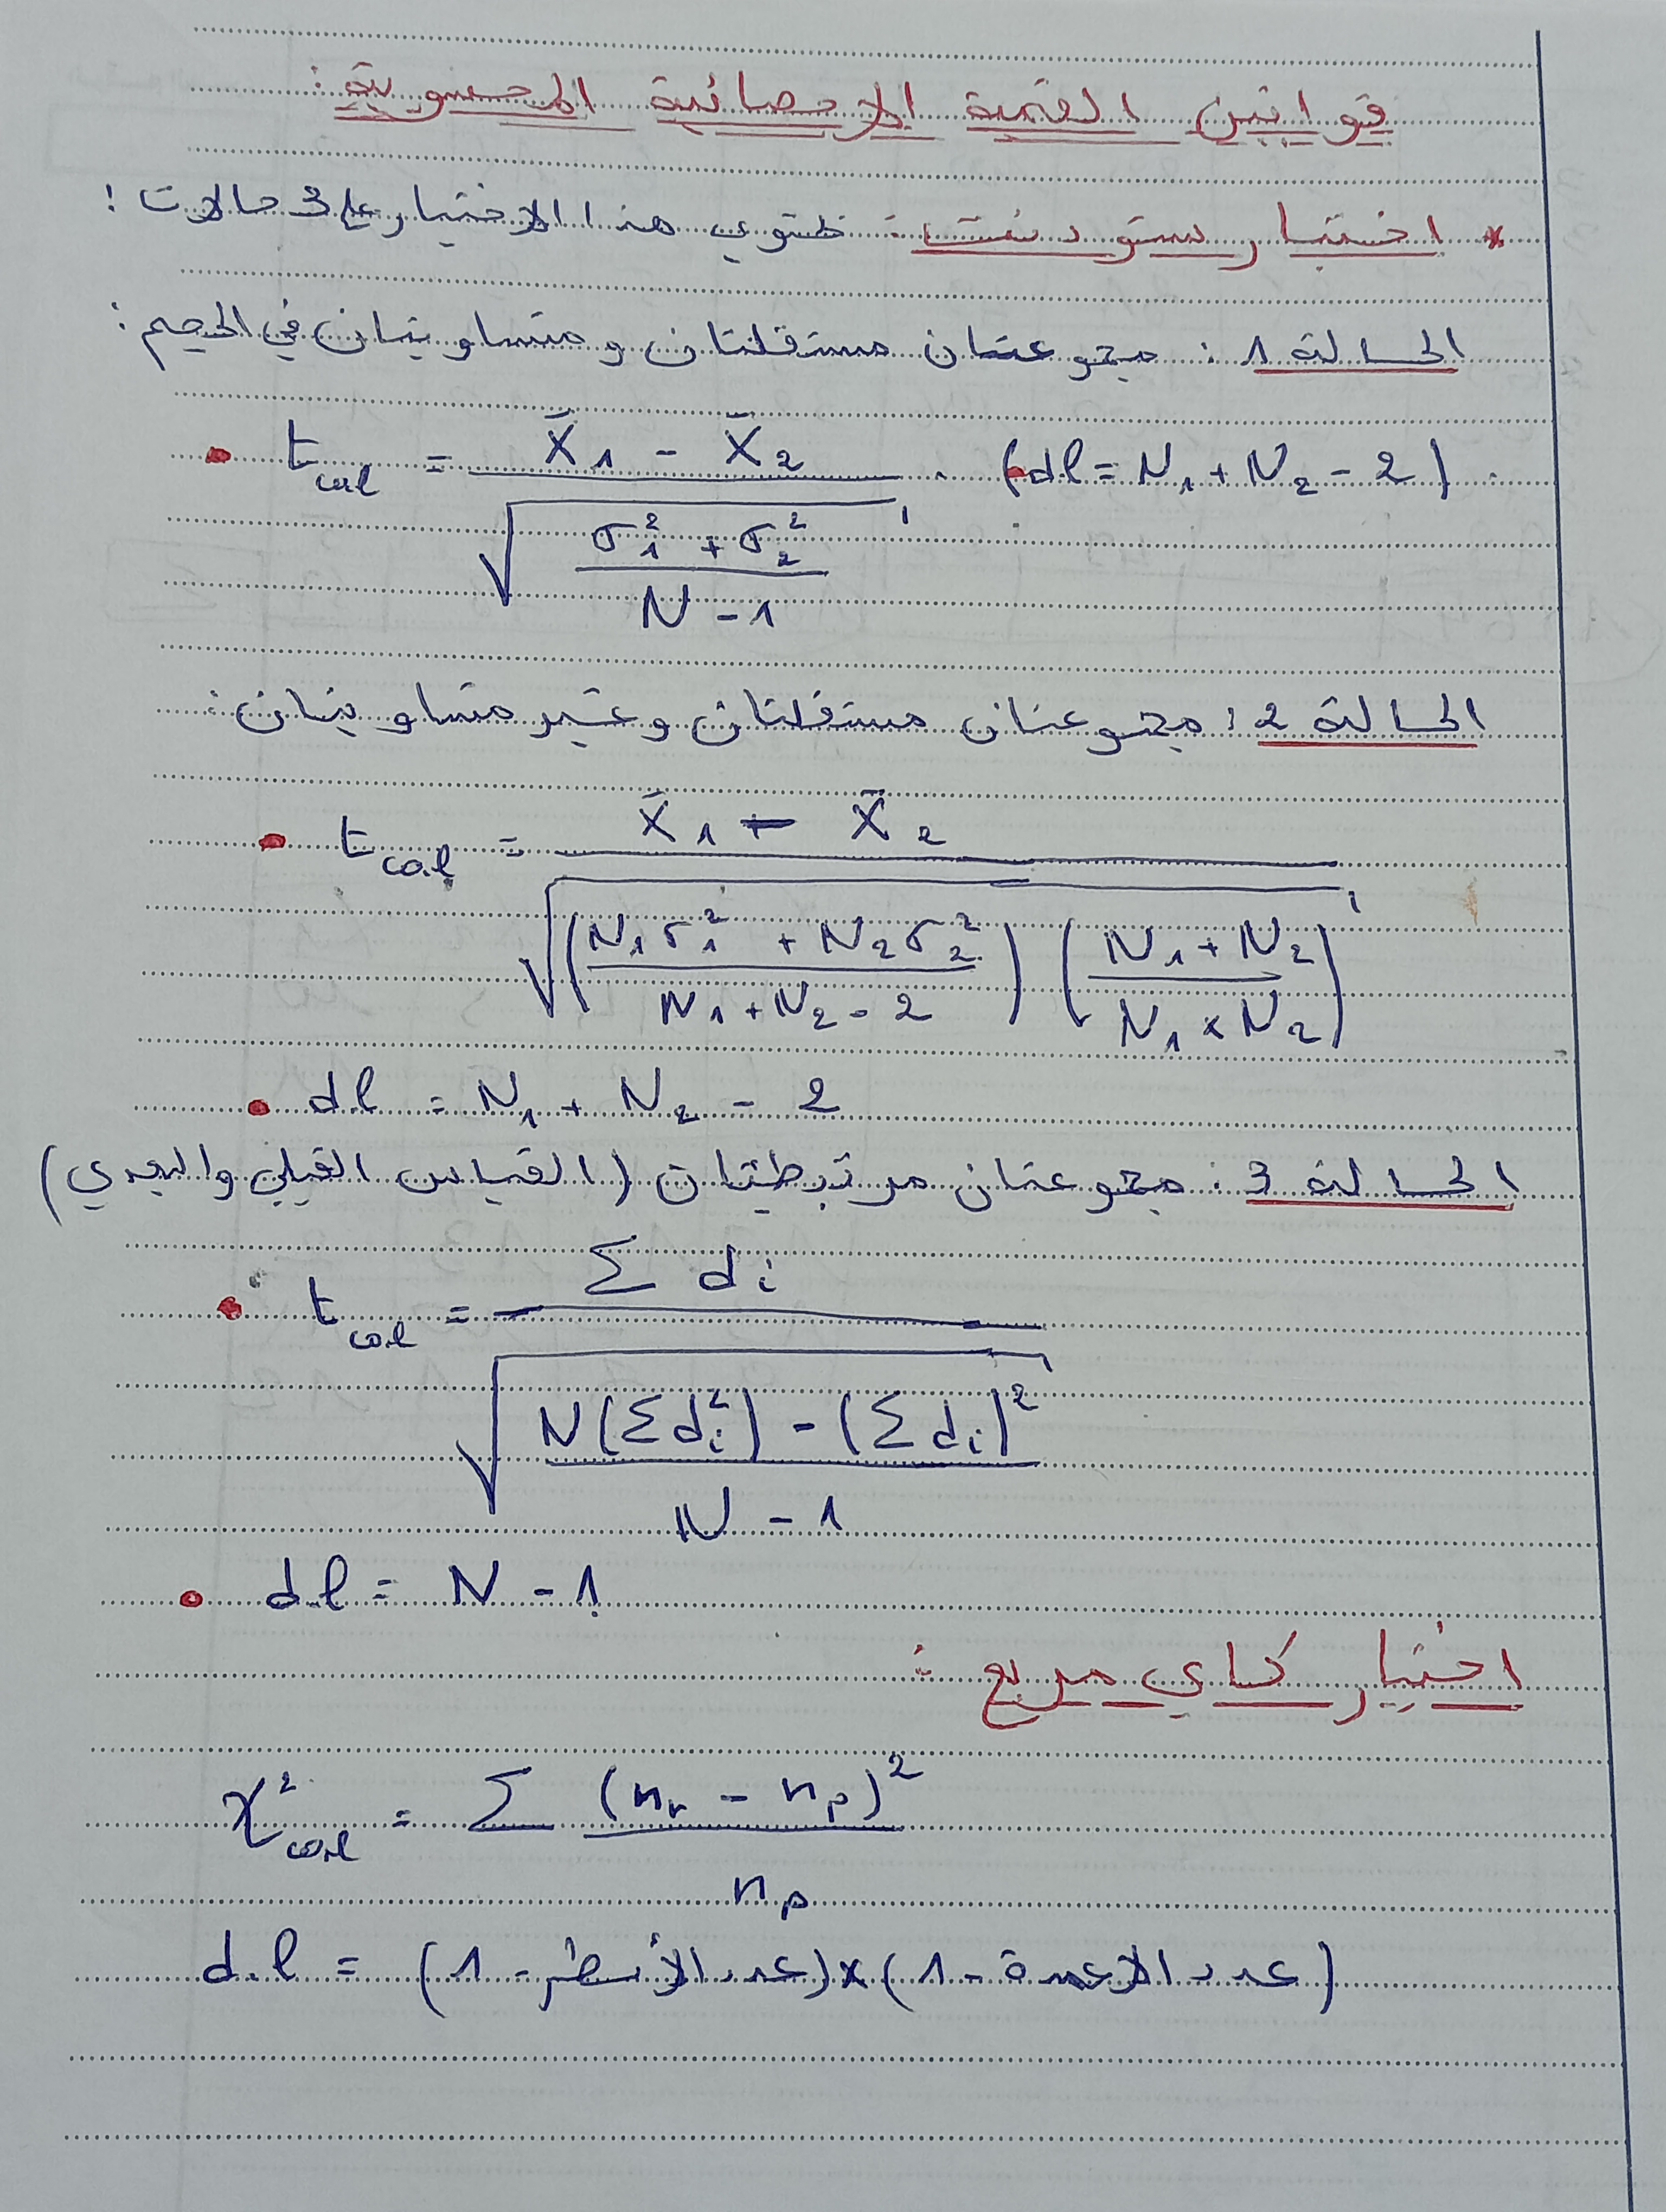 قوانين القيمة الإحصائية المحسوبة:
* اختبار ستودنت: تحتوي هذا الاختبار على 3 حالات:
الحالة 1: مجموعتان مستقلتان ومتساويتان في الحجم:
• t_cal = (X̄₁ - X̄₂) / √((σ₁² + σ₂²) / (N - 1)) . (dl = N₁ + N₂ - 2)
الحالة 2: مجموعتان مستقلتان وغير متساويتان:
• t_cal = (X̄₁ - X̄₂) / √(((N₁σ₁² + N₂σ₂²) / (N₁ + N₂ - 2)) ((N₁ + N₂) / (N₁ × N₂)))
• dl = N₁ + N₂ - 2
الحالة 3: مجموعتان مرتبطتان (القياس القبلي والبعدي)
• t_cal = Σ di / √((N(Σdi²) - (Σdi)²) / (N - 1))
• dl = N - 1
اختبار كاي مربع:
χ²_cal = Σ (nr - np)² / np
d.l = (عدد الأسطر - 1) × (عدد الاعمدة - 1)